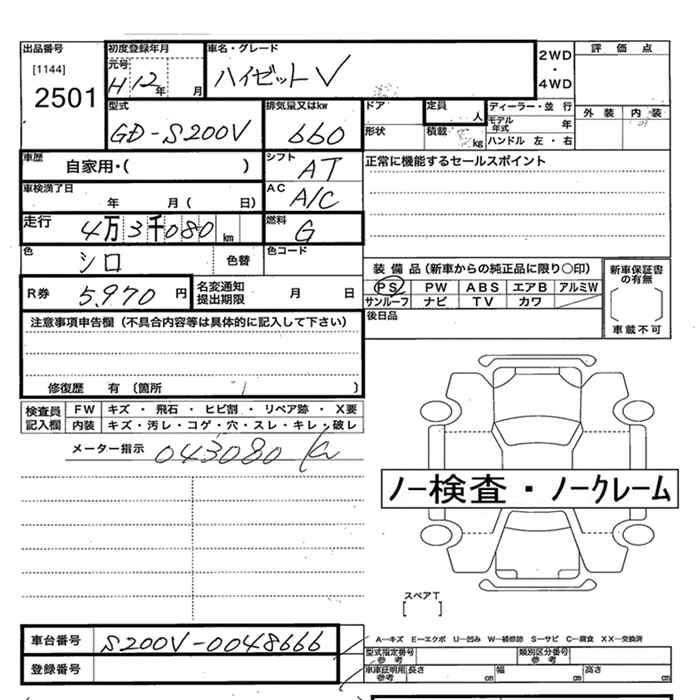 出品番号
[1144]
2501
初度登録年月
元号
H12年 月
車名・グレード
ハイゼットV
2WD
・
4WD
評価点
外装 内装
型式
GD-S200V
排気量又はkw
660
ドア
形状
定員
人
積載
kg
ディーラー・並行
モデル年式 年
ハンドル 左・右
車歴
自家用・( )
シフト
AT
正常に機能するセールスポイント
車検満了日
年 月( 日)
AC
A/C
走行
4万3千080km
燃料
G
色
シロ
色替
色コード
装備品(新車からの純正品に限り○印)
PS PW ABS エアB アルミW
サンルーフ ナビ TV カワ
新車保証書の有無
[ ]
車載不可
R券
5,970円
名変通知
提出期限
月 日
後日品
注意事項申告欄(不具合内容等は具体的に記入して下さい)
修復歴 有(箇所 )
検査員
記入欄
FW キズ・飛石・ヒビ割・リペア跡・X要
内装 キズ・汚レ・コゲ・穴・スレ・キレ・破レ
メーター指示 043080 K
ノー検査・ノークレーム
スペアT
[ ]
車台番号
S200V-0048666
登録番号
A−キズ E−エクボ U−凹み W−補修跡 S−サビ C−腐食 XX−交換済
型式指定番号
参考
類別区分番号
参考
車庫証明用
参考
長さ cm 幅 cm 高さ cm